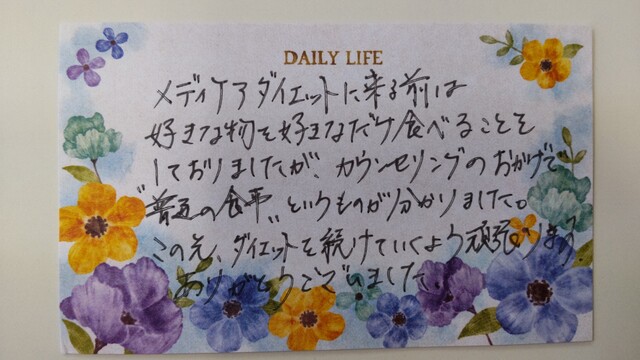 DAILY LIFE
メディケアダイエットに来る前は
好きな物を好きなだけ食べることを
しておりましたが、カウンセリングのおかげで
"普通の食事"というものが分かりました。
この先、ダイエットを続けていくよう頑張ります。
ありがとうございました。